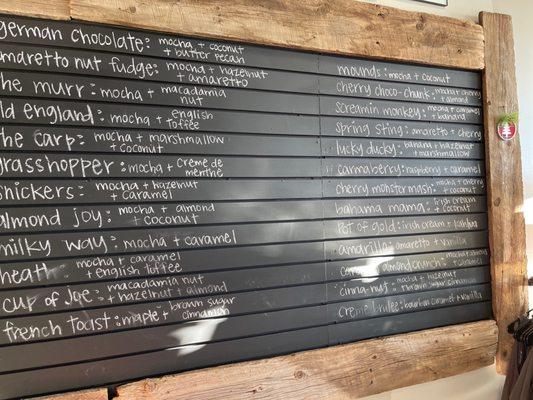 german chocolate: mocha + coconut
+ butter pecan
amaretto nut fudge: mocha + hazelnut
+ amaretto
the murr: mocha + macadamia
nut
old england: mocha + english
toffee
the carp: mocha + marshmallow
+ coconut
grasshopper: mocha + creme de
menthe
snickers: mocha + hazelnut
+ caramel
almond joy: mocha + almond
+ coconut
milky way: mocha + caramel
heath: mocha + caramel
+ english toffee
cup of joe: macadamia nut
+ hazelnut + almond
french toast: maple + brown sugar
cinnamon
mounds: mocha + coconut
cherry choco-chunk: mocha + cherry
+ almond
screamin monkey: mocha + caramel
+ banana
spring sting: amaretto + cherry
lucky ducky: banana + hazelnut
+ marshmallow
carmaberry: raspberry + caramel
cherry monster mash: mocha + cherry
+ coconut
bahama mama: irish cream
+ coconut
pot of gold: irish cream + kahlua
amarilla: amaretto + vanilla
almond crunch: mocha + almond
+ caramel
cinna-nut: mocha + hazelnut
+ brown sugar cinnamon
creme brulee: bourbon caramel + vanilla